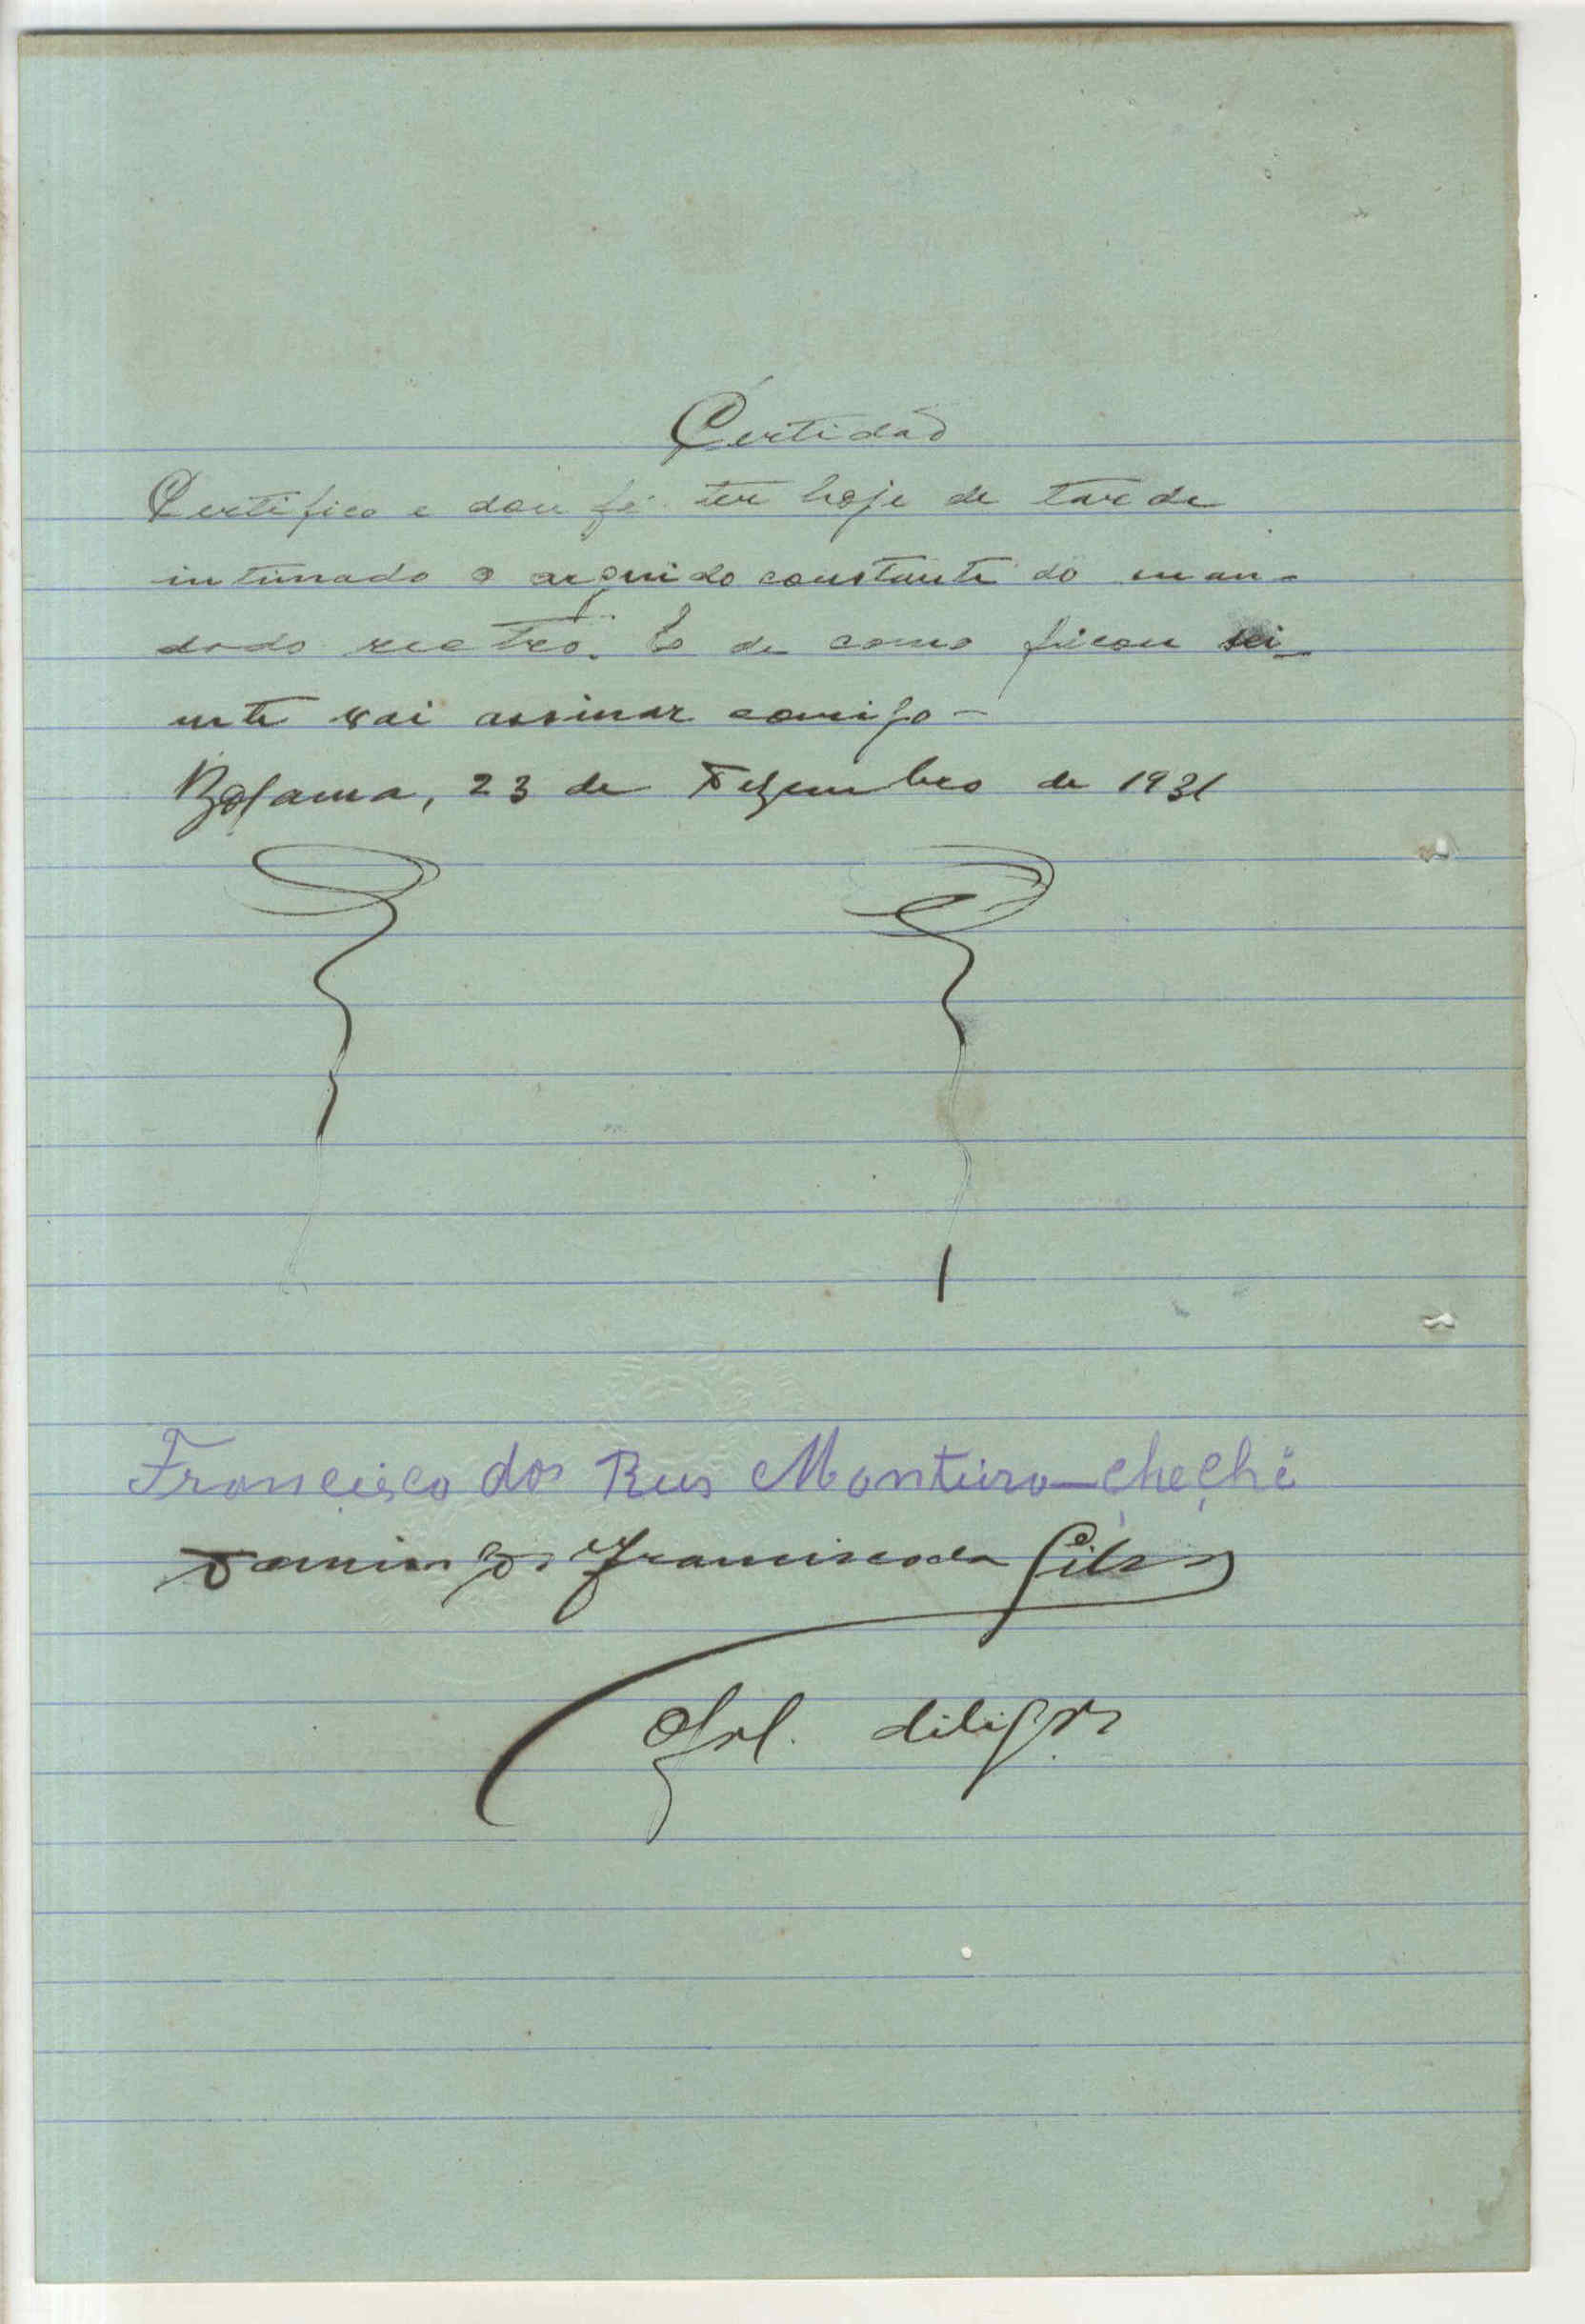 Certidão
Certifico e dou fé ter hoje de tarde
intimado o arguido constante do man-
dado retro. E de como ficou sci-
ente vai assinar comigo -
Bolama, 23 de Dezembro de 1931
Francisco dos Reis Monteiro - Chechê
Domingos Francisco da Silva
Ofal. diligas